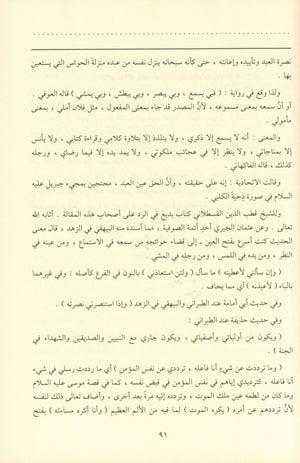 نصرة العبد وتأييده وإعانته ، حتى كأنه سبحانه ينزل نفسه من عبده منزلة الحواس التي يستعين
بها .
ولذا وقع في رواية : ( فبي يسمع ، وبي يبصر ، وبي يبطش ، وبي يمشي ) قاله العوفي .
أو أنَّ سمعه بمعنى مسموعه ، لأنَّ المصدر قد جاء بمعنى المفعول ، مثل فلان أملي ، بمعنى
مأمولي .
والمعنى : أنه لا يسمع إلا ذكري ، ولا يتلذذ إلا بتلاوة كلامي وقراءة كتابي ، ولا يأنس
إلا بمناجاتي ، ولا ينظر إلا في عجائب ملكوتي ، ولا يمد يده إلا فيما رضاي ، ورجله
كذلك ، قاله الفاكهاني .
وقالت الاتحادية : إنه على حقيقته ، وأنَّ الحق عين العبد ، محتجين بمجيء جبريل عليه
السلام في صورة دحية الكلبي .
وللشيخ قطب الدين القسطلاني كتاب بديع في الرد على أصحاب هذه المقالة . أثابه الله
وعن عثمان الجيري أحد أئمة الصوفية ، مما أسنده منه البيهقي في الزهد ، قال معنى
الحديث كنت أسرع بفتح العين ـ إلى قضاء حوائجه من سمعه في الاستماع ، ومن عينه في
النظر ، ومن يده في اللمس ، ومن رجله في المشي .
( وإن سألني لأعطينه ) ما سأل ( ولئن استعاذني ) بالنون في الفرع كأصله : وفي غيرهما
بالباء ( لأعيذنه ) أي مما يخاف .
وفي حديث أبي أمامة عند الطبراني والبيهقي في الزهد ( وإذا استنصرني نصرته ) .
وفي حديث حذيفة عند الطبراني :
( ويكون من أوليائي وأصفيائي ، ويكون جاري مع النبيين والصديقين والشهداء في
الجنة ) .
( وما ترددت عن شيء أنا فاعله ، ترددي عن نفس المؤمن ) أي ما رددت رسلي في شيء
أنا فاعله ، كترديدي إياهم في نفس المؤمن ، في قبض نفسه ، كما في قصة موسى عليه السلام
وما كان من لطمه عين ملك الموت ، وتردده إليه مرة بعد أخرى ، وأضاف تعالى ذلك لنفسه
لأنَّ ترددهم عن أمره ( يكره الموت ) لما فيه من الألم العظيم ( وأنا أكره مساءته ) بفتح
٩١